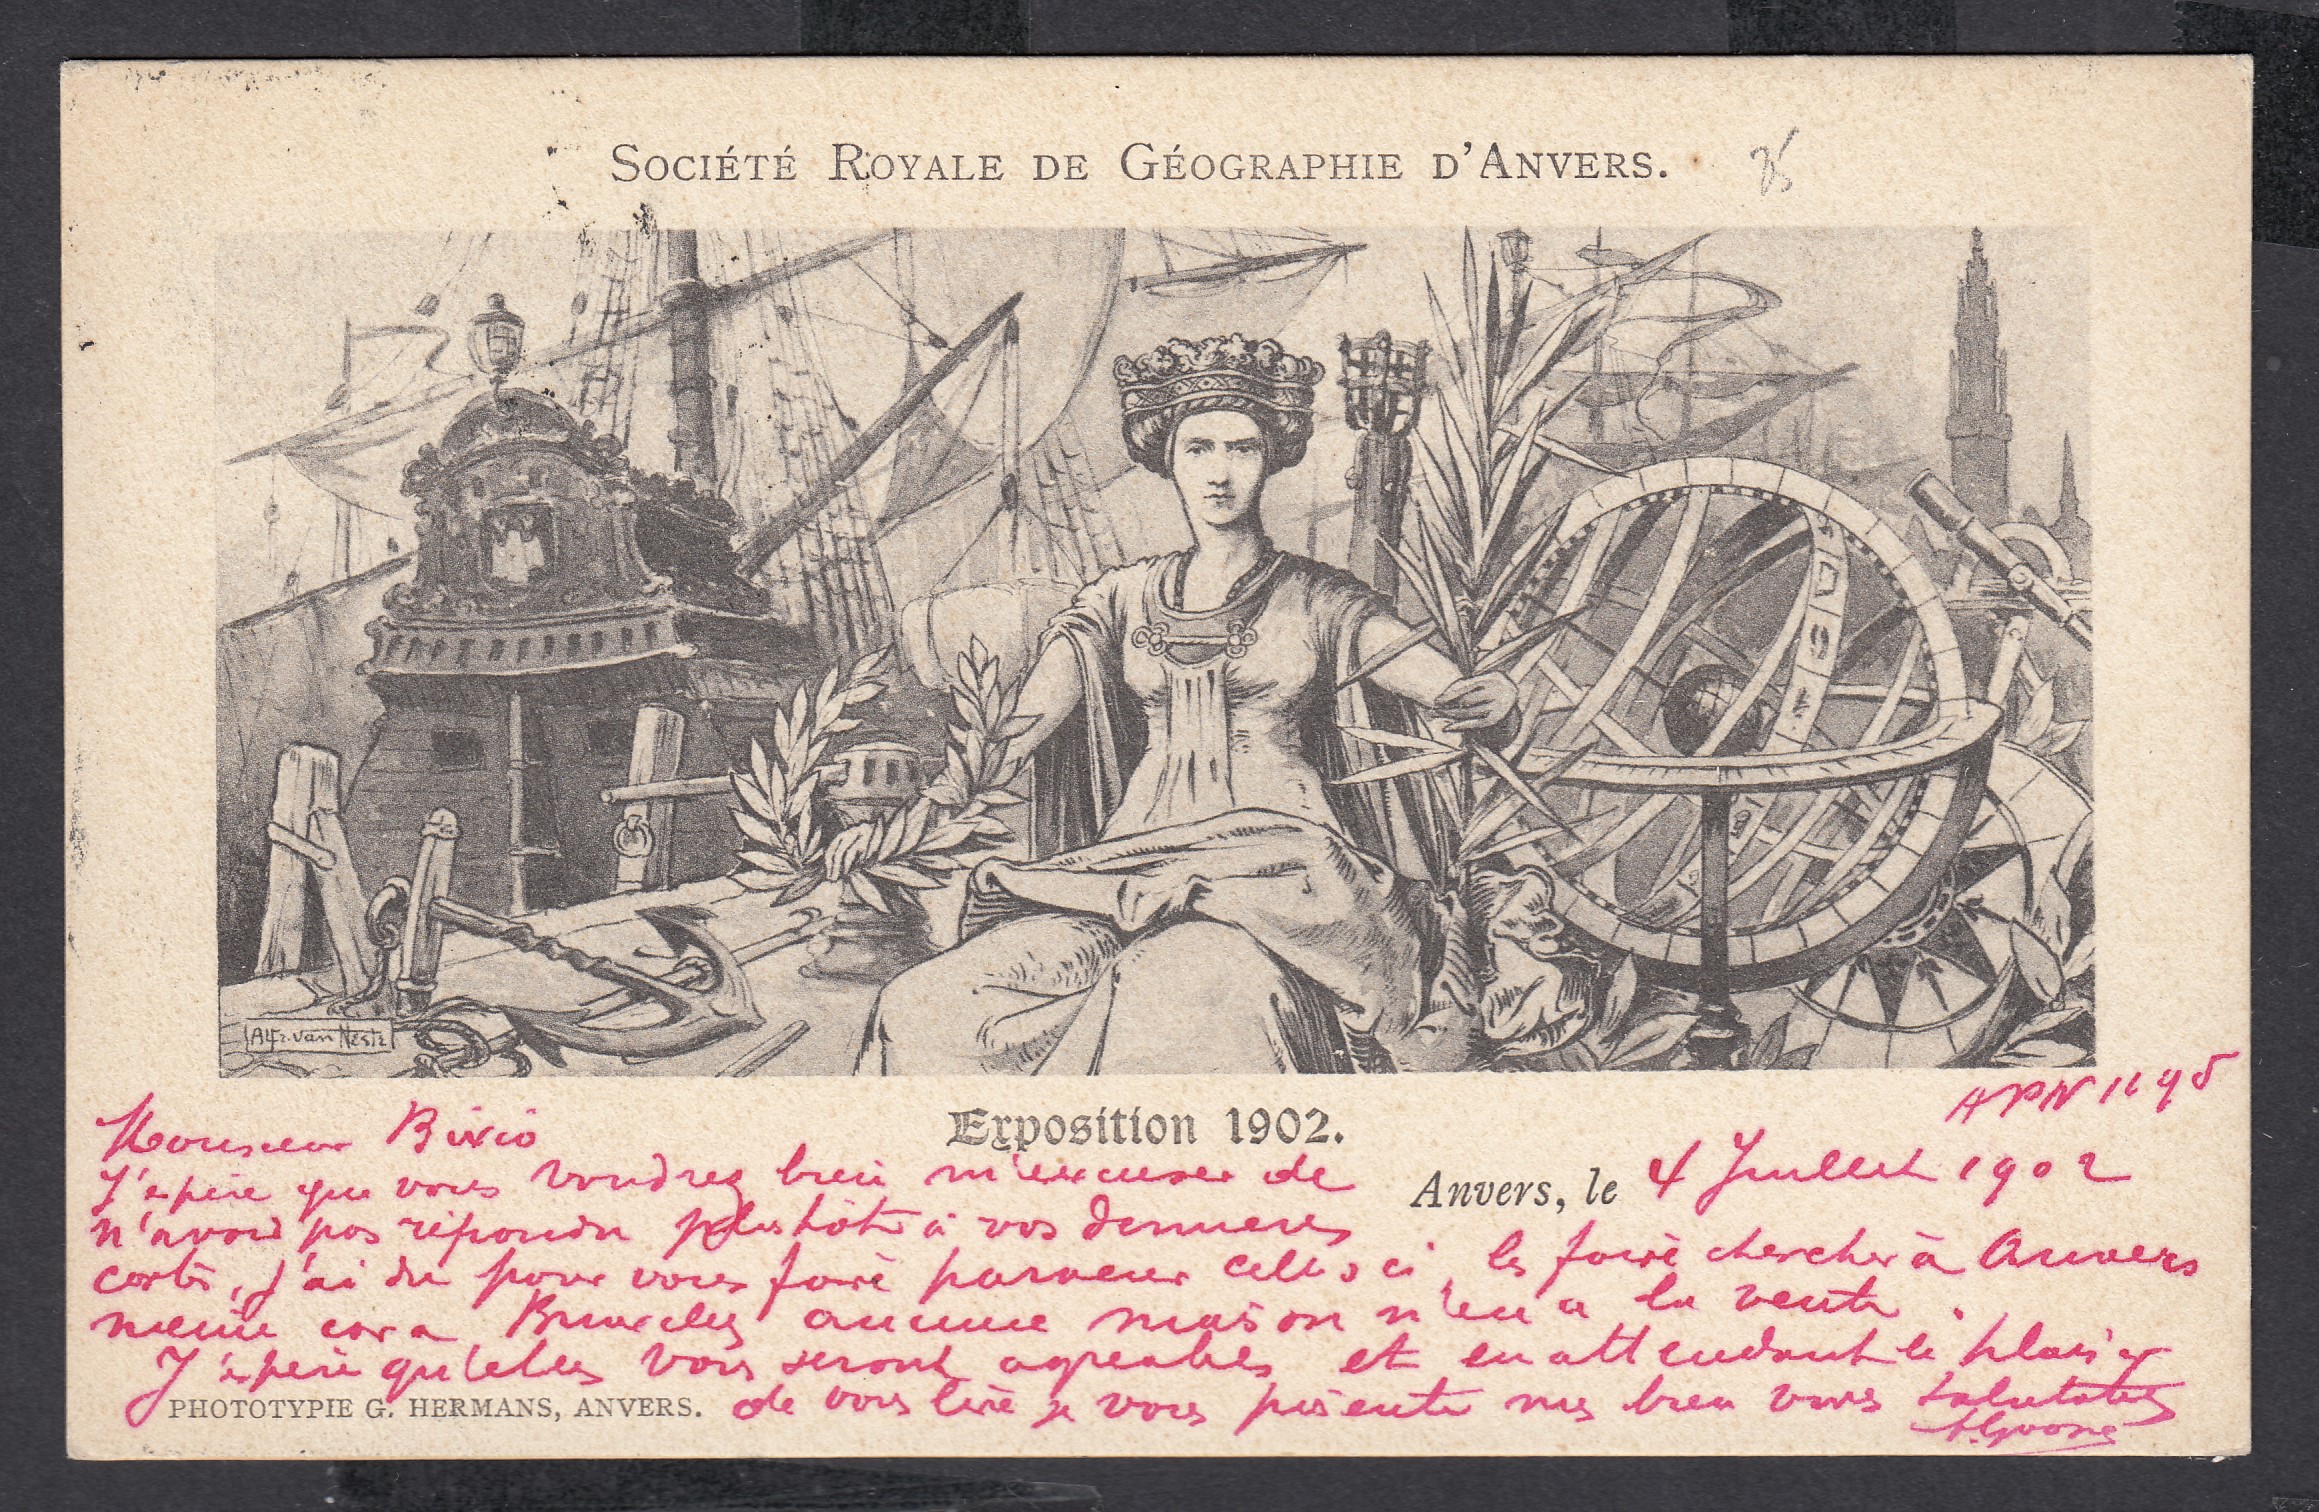 SOCIÉTÉ ROYALE DE GÉOGRAPHIE D'ANVERS.
Alf. van Neste
APN 1195
Exposition 1902.
Monsieur Bixio
Anvers, le 4 Juillet 1902
J'espère que vous voudrez bien m'excuser de
n'avoir pas répondu plus tôt à vos dernieres
cartes, j'ai du pour vous faire parvenir celles ci, les faire chercher à Anvers
même car a Bruxelles aucune maison n'en a la vente.
J'espère qu'elles vous seront agreables et en attendant le plaisir
de vous lire je vous présente mes bien vives salutations
PHOTOTYPIE G. HERMANS, ANVERS.